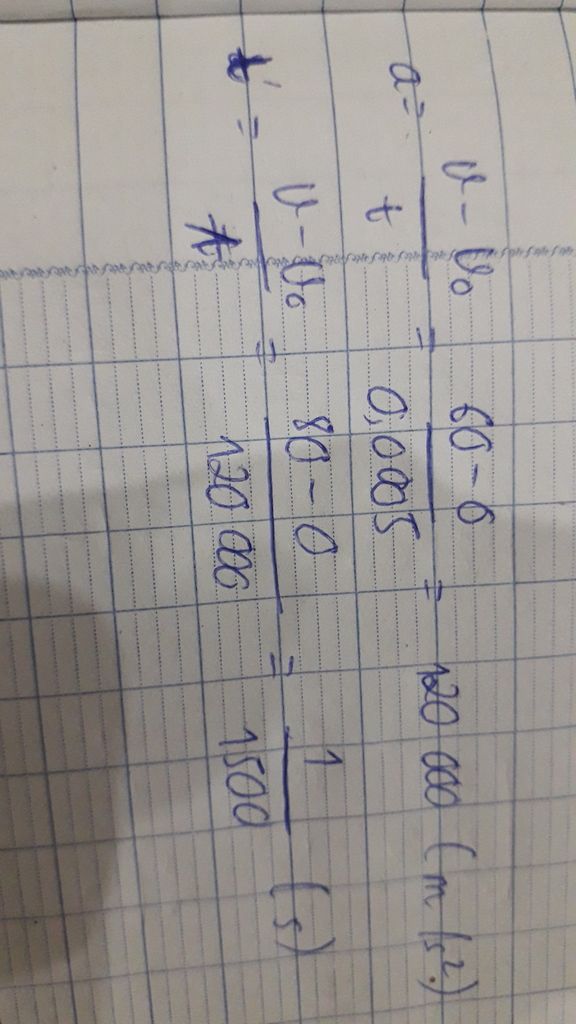 a = \frac{v - v_0}{t} = \frac{60 - 0}{0,0005} = 120 000 (m/s²)
t' = \frac{v - v_0}{t} = \frac{80 - 0}{120 000} = \frac{1}{1500} (s)